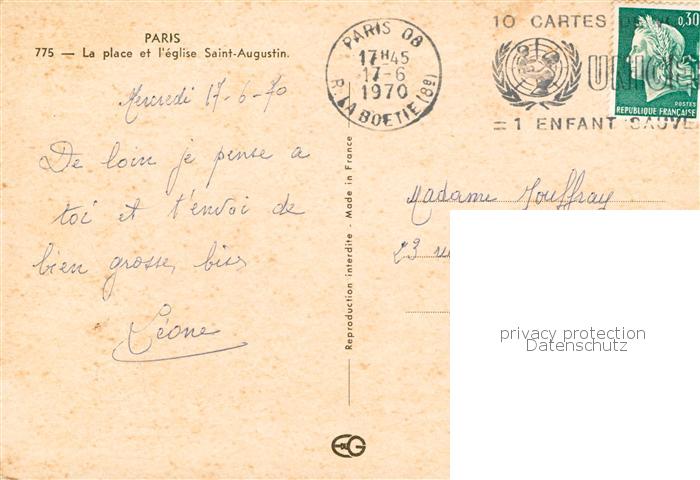 PARIS
775 — La place et l'église Saint-Augustin.
Mercredi 17-6-70
De loin je pense a
toi et t'envoi de
bien grosses bises
Léone
Reproduction interdite - Made in France
PARIS 08
17H45
17-6
1970
R. LA BOETIE (8e)
10 CARTES DE
UNICE
= 1 ENFANT SAUVE
0,30
POSTES
REPUBLIQUE FRANÇAISE
Madame Jouffray
23
privacy protection
Datenschutz